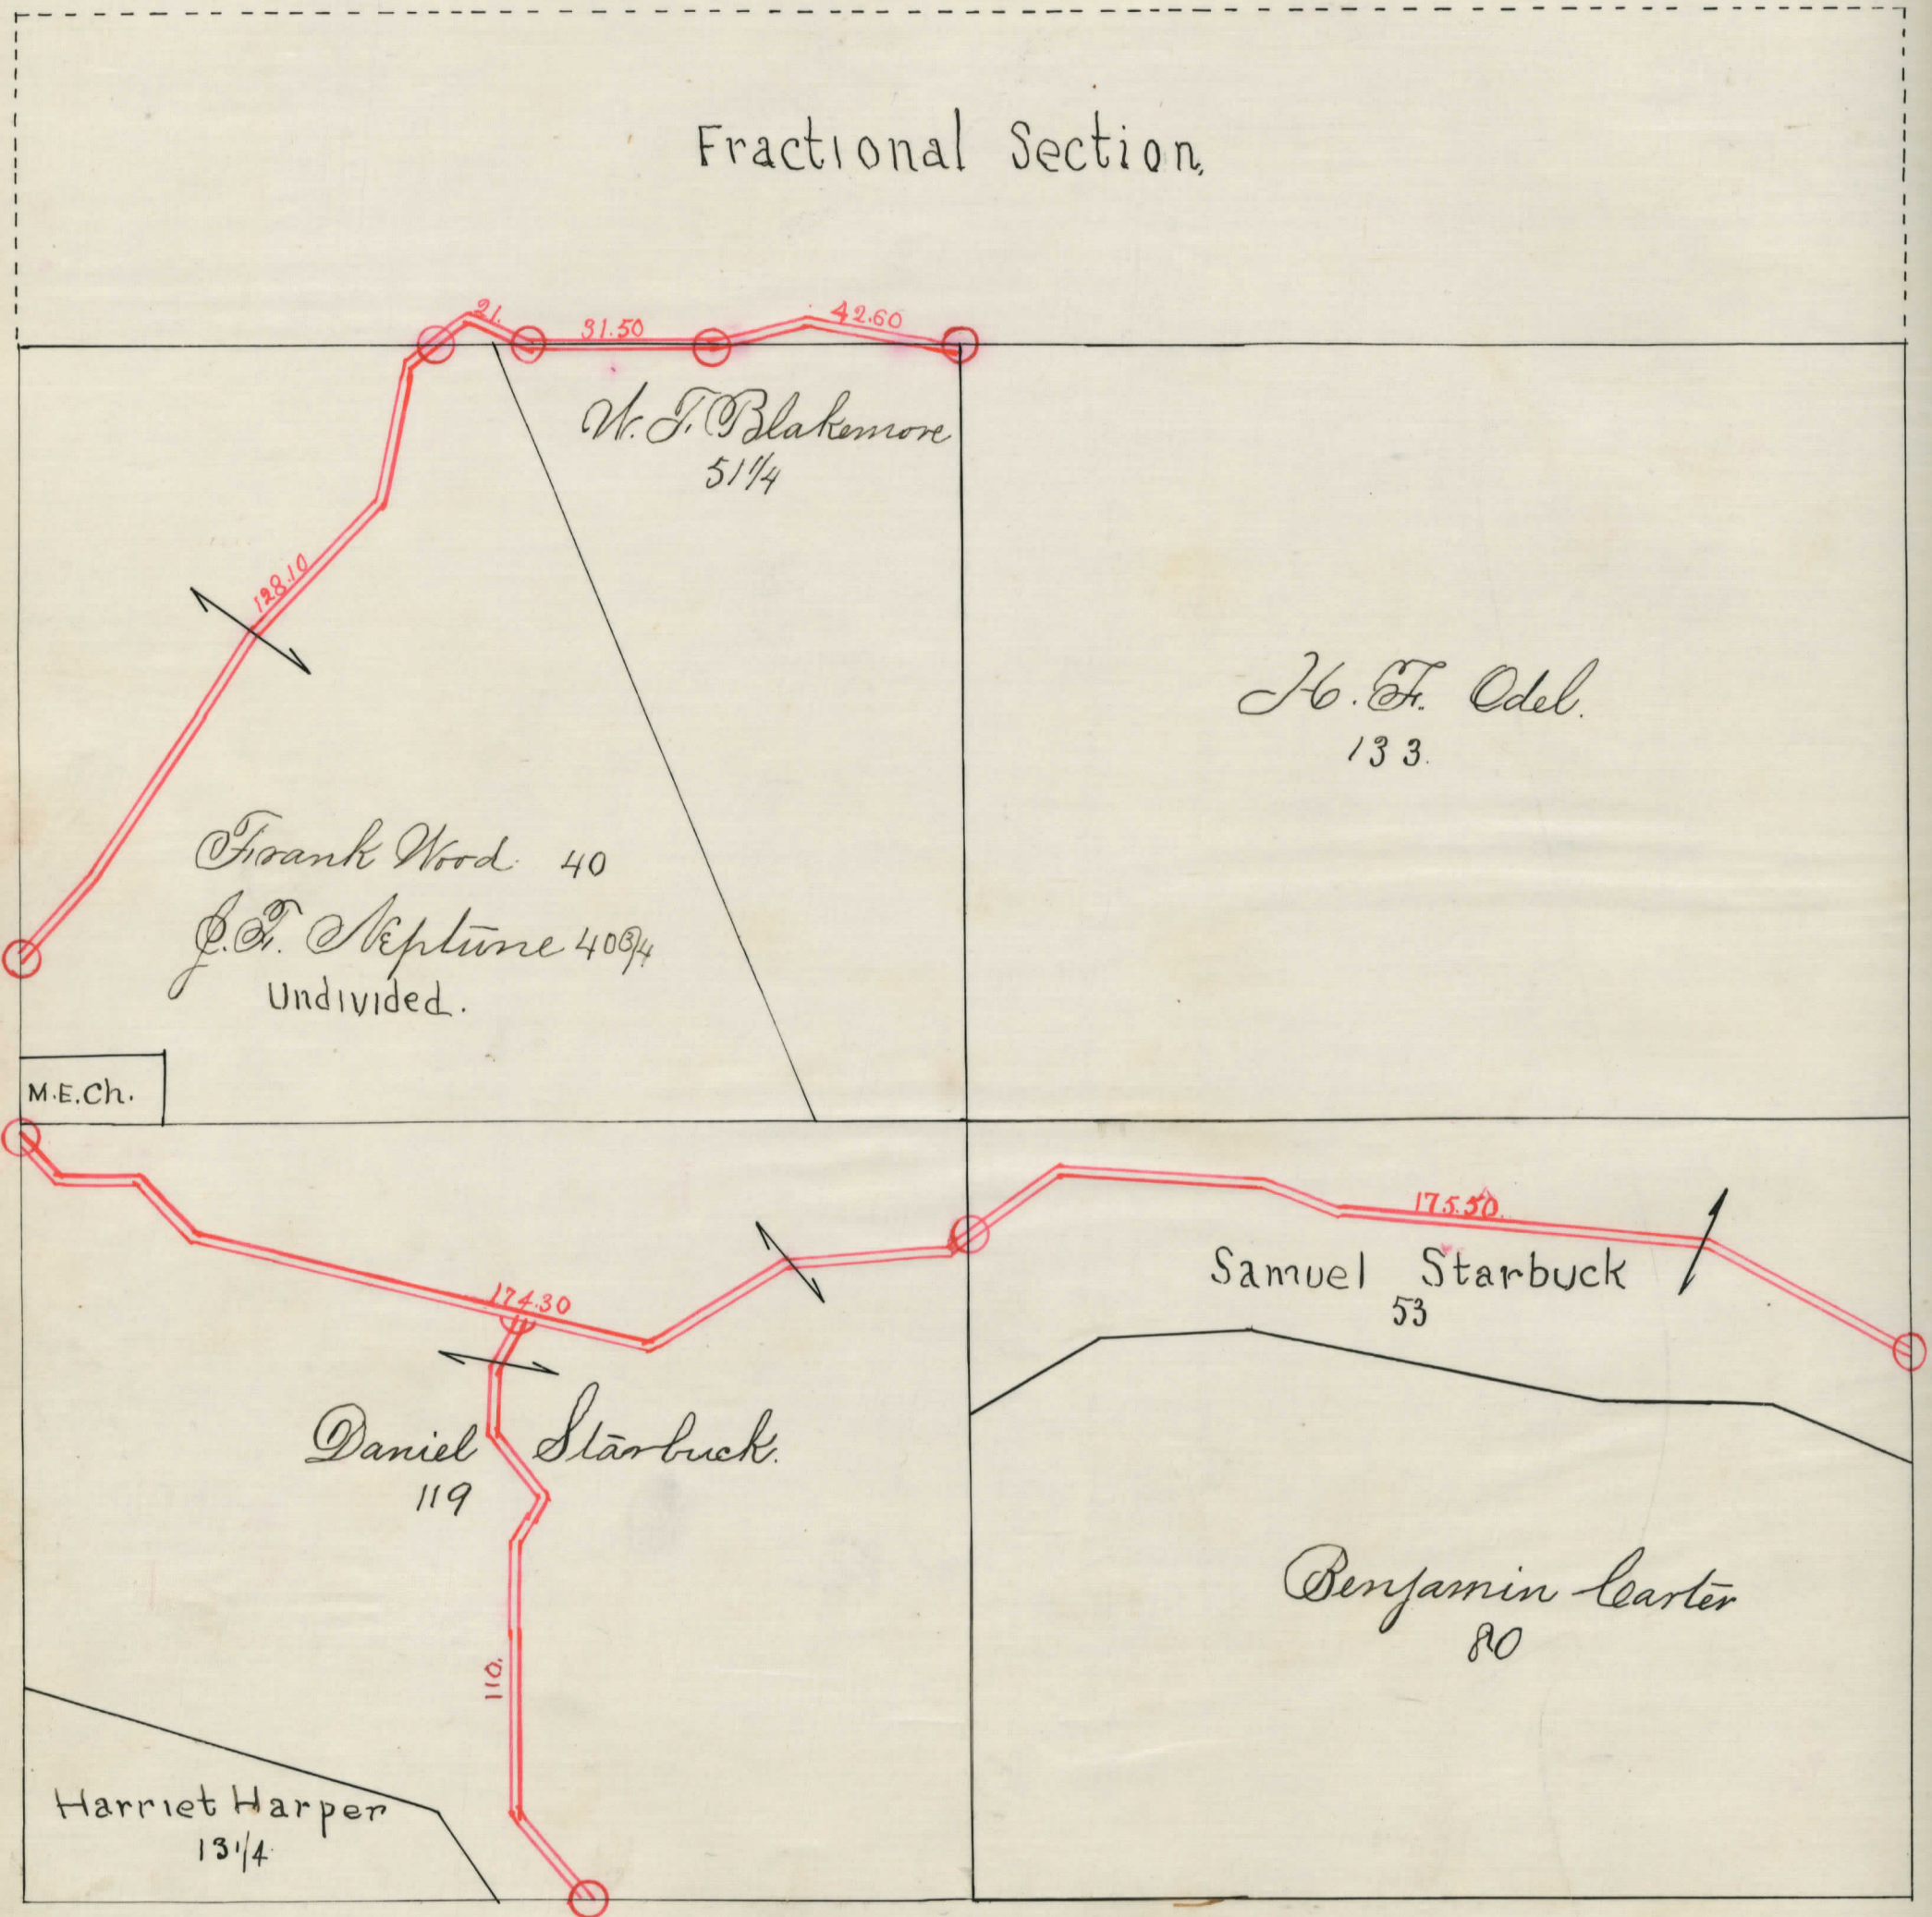 Fractional Section.
21.
31.50
42.60
W. T. Blakemore
51 1/4
128.10
H. F. Odel.
133.
Frank Wood. 40
J. F. Neptune 40 3/4
Undivided.
M.E.Ch.
175.50.
Samuel Starbuck
53
174.30
Daniel Starbuck.
119
Benjamin Carter
80
110.
Harriet Harper
13 1/4